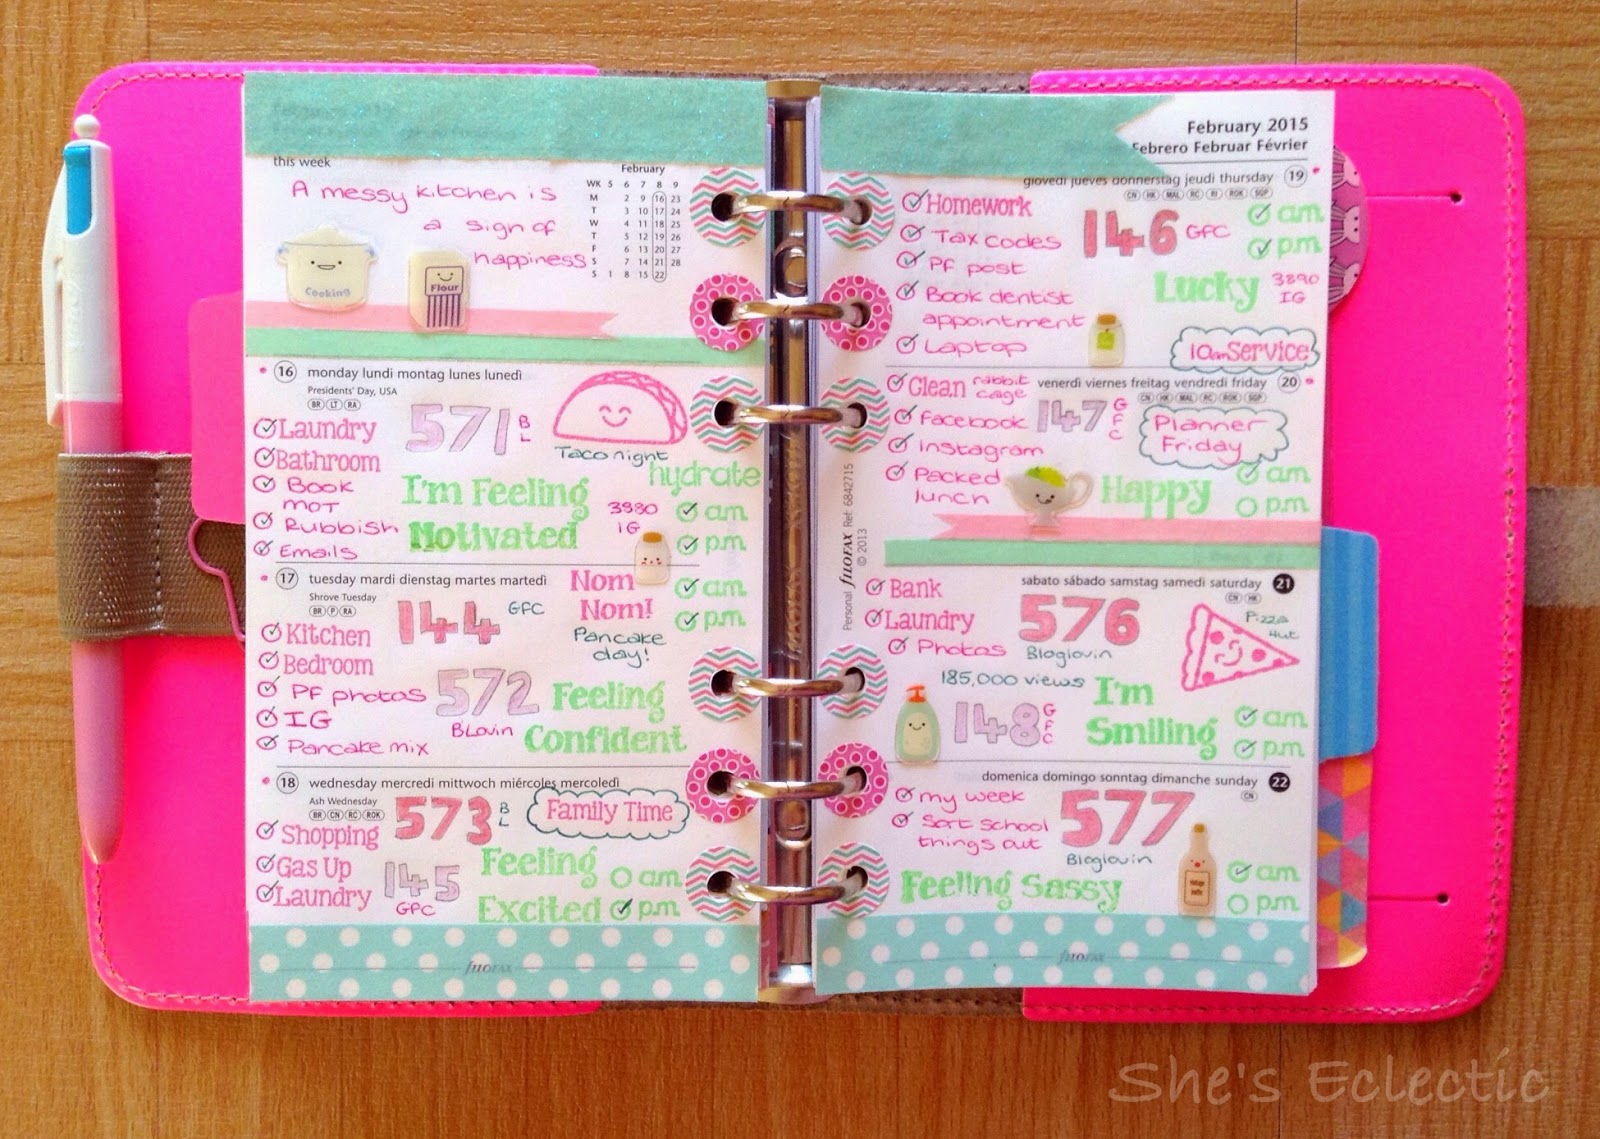 this week
A messy kitchen is
a sign of
happiness
Cooking
Flour
February
WK 5 6 7 8 9
M 2 9 16 23
T 3 10 17 24
W 4 11 18 25
T 5 12 19 26
F 6 13 20 27
S 7 14 21 28
S 1 8 15 22
16 monday lundi montag lunes lunedì
Presidents' Day, USA
BR LT RA
Laundry
Bathroom
Book
MOT
Rubbish
Emails
571 BL
Taco night
I'm Feeling
Motivated
hydrate
3880
IG
am
pm
17 tuesday mardi dienstag martes martedì
Shrove Tuesday
BR P RA
Kitchen
Bedroom
PF photos
IG
Pancake mix
144 GFC
Nom
Nom!
Pancake
day!
am
pm
572
BLovin
Feeling
Confident
18 wednesday mercredi mittwoch miércoles mercoledì
Ash Wednesday
BR CN RC ROK
Shopping
Gas Up
Laundry
573 BL
Family Time
145
GFC
Feeling
Excited
am
pm
filofax
February 2015
Febrero Februar Février
giovedì jueves donnerstag jeudi thursday 19
CN HK MAL RC RI ROK SGP
Homework
Tax codes
PF post
Book dentist
appointment
Laptop
146 GFC
am
pm
Lucky
3890
IG
10am Service
Clean rabbit
cage
venerdì viernes freitag vendredi friday 20
CN HK MAL RC ROK SGP
Facebook
Instagram
Packed
lunch
147 GFC
Planner
Friday
Happy
am
pm
Personal filofax Ref: 6842715
© 2013
sabato sábado samstag samedi saturday 21
CN HK
Bank
Laundry
Photos
576
Bloglovin
Pizza
Hut
185,000 views
148 GFC
I'm
Smiling
am
pm
domenica domingo sonntag dimanche sunday 22
CN
my week
Sort school
things out
577
Bloglovin
Feeling Sassy
am
pm
filofax
She's Eclectic